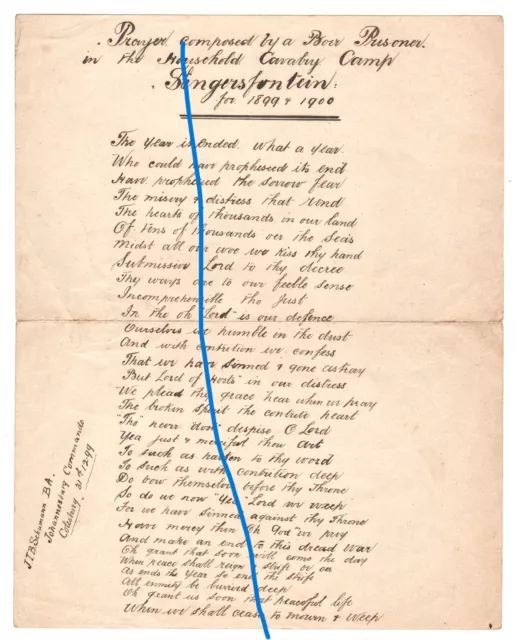 Prayer composed by a Boer Prisoner.
in the Household Cavalry Camp
Slingersfontein.
for 1899 & 1900
The Year is ended. What a Year.
Who could have prophesied its end
Have prophesied the sorrow fear
The misery & distress that rend
The hearts of thousands in our land
Of tens of thousands oer the Seas
Midst all our woe we kiss thy hand
Submissive Lord to thy decree
Thy ways are to our feeble sense
Incomprehensible tho Just
In the oh "Lord" is our defence
Ourselves we humble in the dust
And with contrition we confess
That we have sinned & gone astray
But Lord of Hosts" in our distress
We plead thy grace hear when we pray
The broken spirit the contrite heart
Tho' never "dost" despise O Lord
Yea just & merciful thou art
To such as harken to thy word
To such as with contrition deep
Do bow themselves before thy Throne
So do we now "Yea" Lord we weep
For we have sinned against thy Throne
Have mercy then Oh God we pray
And make an end to this dread War
Oh grant that soon will come the day
When peace shall reign & strife on
As ends the Year so end the strife
All enmity be burried deep
Oh grant us soon that peaceful life
When we shall cease to mourn & weep
J.T.B. Schumann B.A.
Johannesburg Commando
Colesburg 31st 12.99